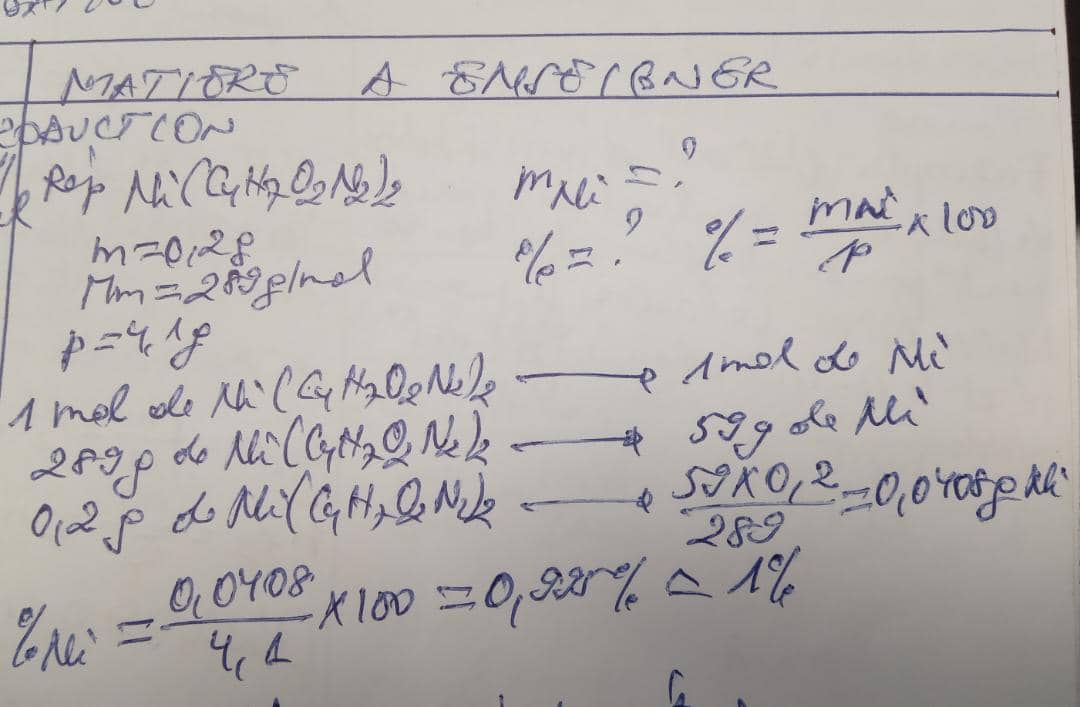 MATIERE A ENSEIGNER
Rép Ni(C4H7O2N2)2 mNi = ?
m=0,2g % = ? % = mNi/p x 100
Mm=289g/mol
p=4,1g
1 mol de Ni(C4H7O2N2)2 → 1mol de Ni
289g de Ni(C4H7O2N2)2 → 59g de Ni
0,2g de Ni(C4H7O2N2)2 → 59x0,2/289 = 0,0408g Ni
%Ni = 0,0408/4,1 x 100 = 0,995% ≃ 1%